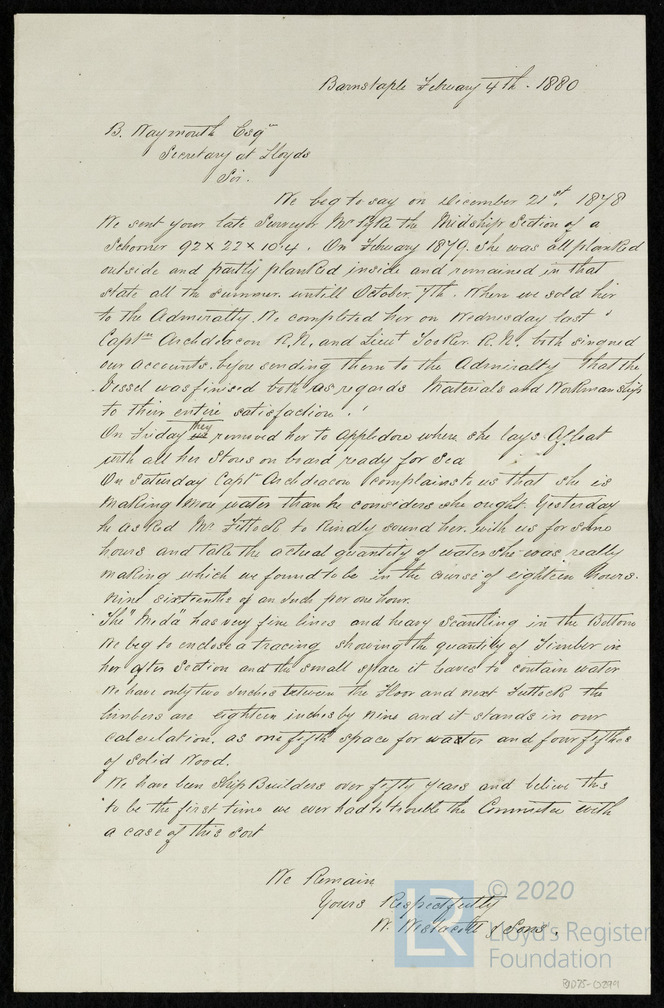 Barnstaple February 4th. 1880
B. Waymouth Esqr
Secretary at Lloyds
Sir.
We beg to say on December 21st. 1878
We sent your late Surveyor Mr Pyke the Midship Section of a
Schorner 92 x 22 x 10.4. On February 1879. She was all planked
outside and partly planked inside and remained in that
state all the summer. untill October 7th. When we sold her
to the Admiralty. We completed her on Wednesday last
Captn Archdeacon R.N. and Lieut Tooker R.N. both singned
our accounts. before sending them to the Admiralty that the
Vessel was finised both as regards Materials and Workmanship
to their entire satisfaction.
On Friday they removed her to Appledore where she lays Afloat
with all her Stores on board ready for Sea
On Saturday Captn Archdeacon complains to us that she is
Making More water than he considers she ought. Yesterday
he asked Mr Tuttock to Kindly sound her. with us for some
hours and take the actual quantity of water she was really
making which we found to be in the course of eighteen hours.
nine sixteenths of an Inch per one hour.
The "Meda" has very fine lines and heavy Scantling in the Bottom
We beg to enclose a tracing showing the quantity of Timber in
her after Section and the small space it leaves to contain water
We have only two Inches between the Floor and next Futtock the
timbers are eighteen inches by nine and it stands in our
calculation. as one fifth space for water and four fifthes
of Solid Wood.
We have been Ship Builders over fifty years and believe this
to be the first time we ever had to trouble the Committee with
a case of this sort
We Remain
Yours Respectfully
W. Westacott & Sons.
LR
© 2020
Lloyd's Register
Foundation